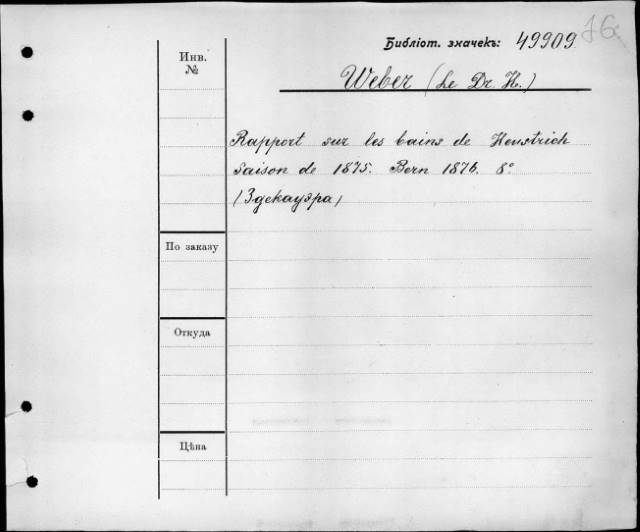 16.
Библіот. значекъ: 49909.
Инв.
№
Weber (Le Dr. H.)
Rapport sur les bains de Heustrich
Saison de 1875. Bern 1876. 8°
(Здекауэра)
По заказу
Откуда
Цѣна